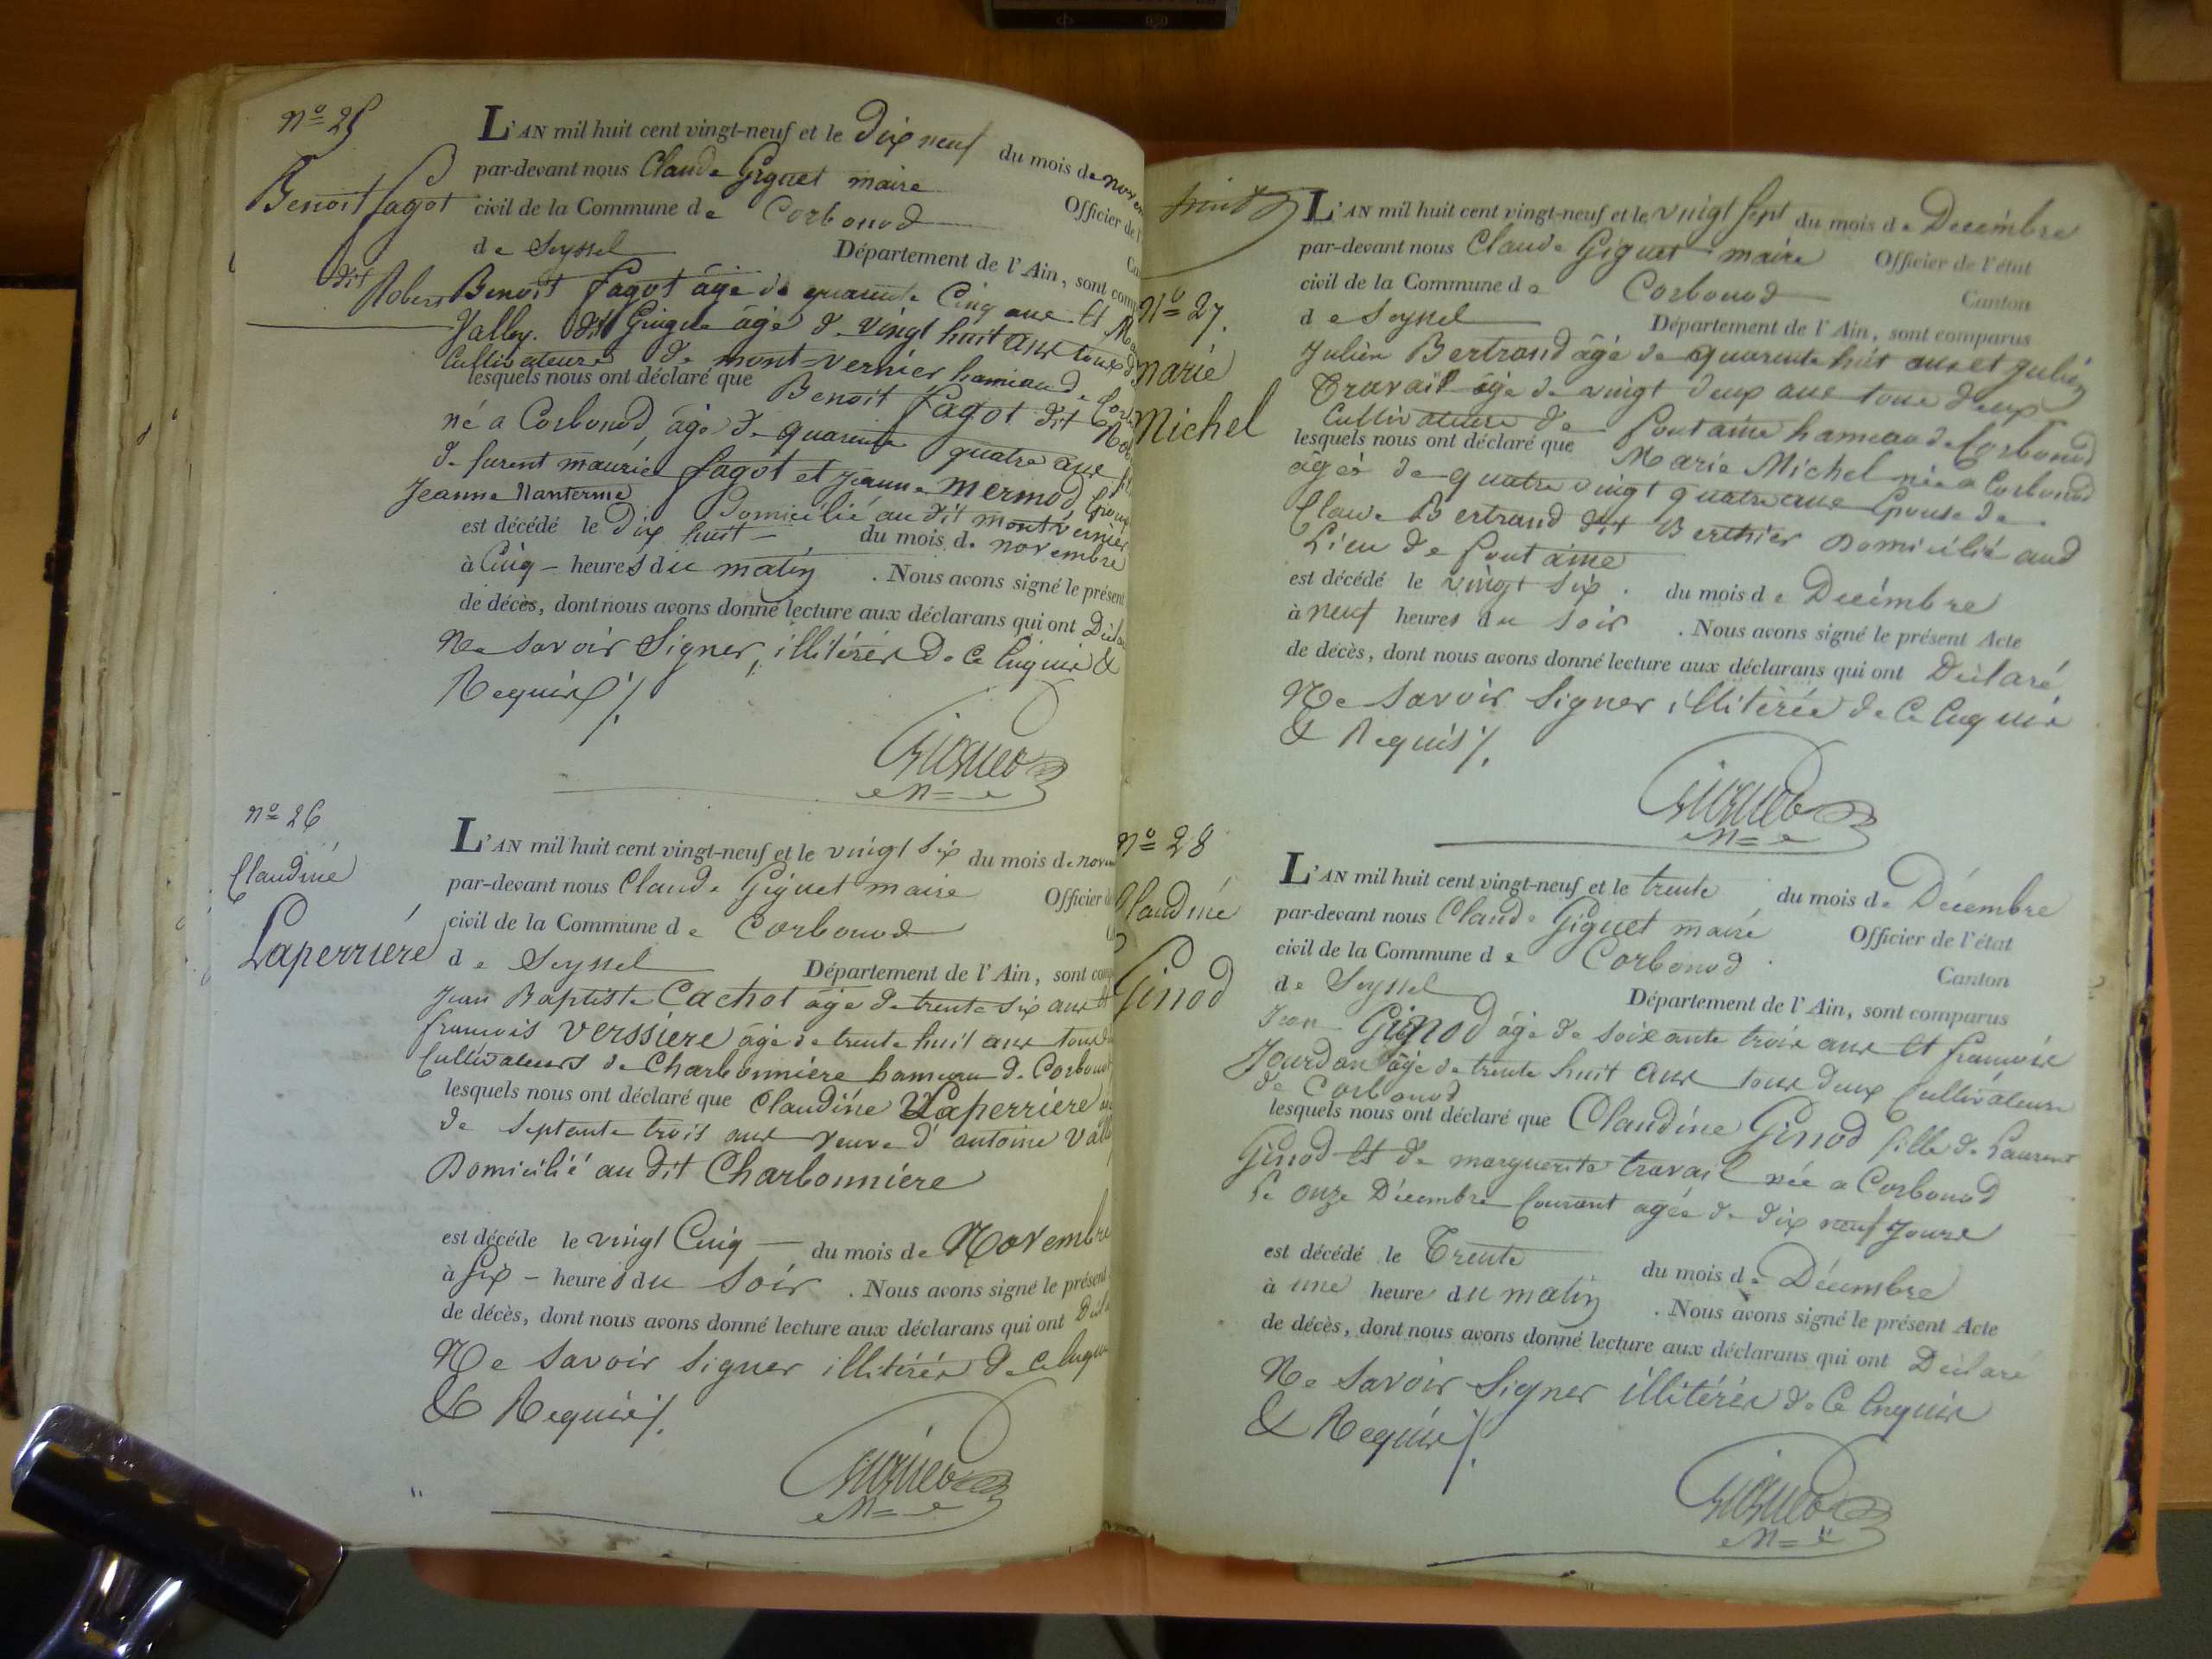 nº 25
Benoit fagot
dit Robers
L'AN mil huit cent vingt-neuf et le Dix neuf du mois de nov
par-devant nous Claude Giguet maire Officier de l'
civil de la Commune de Corbonod
de Seyssel Département de l'Ain, sont com
Benoit fagot âgé de quarante Cinq ans Et
Valley. dit Guigue âgé de vingt huit ans tous d
Cultivateurs de mont-vernier hameau de Corb
lesquels nous ont déclaré que Benoit fagot dit Rob
né a Corbonod, âgé de quarente quatre ans fil
de furent maurice fagot et jeanne mermod, Epoux
Jeanne Nanterme Domicilié au dit montvernier
est décédé le Dix huit du mois de novembre
à Cinq heures du matin . Nous avons signé le présent
de décès, dont nous avons donné lecture aux déclarans qui ont Décla
Ne savoir Signer, illitérés de Ce Enquis &
Requis ./.
Giguet
nº 26
Claudine
Laperriére
L'AN mil huit cent vingt-neuf et le vingt Six du mois de nove
par-devant nous Claude Giguet maire Officier de
civil de la Commune de Corbonod
de Seyssel Département de l'Ain, sont com
Jean Baptiste Cachot âgé de trente six ans Et
francois Verssiere âgé de trente huit ans tous d
Cultivateurs de Charbonniére hameau de Corbonod
lesquels nous ont déclaré que Claudine Laperriére
de septante trois ans veuve d'antoine Vall
Domicilié au dit Charbonniére
est décédé le vingt Cinq du mois de Novembre
à Six heures du soir . Nous avons signé le présent
de décès, dont nous avons donné lecture aux déclarans qui ont Décla
Ne savoir signer illitérés de Ce Enquis
& Requis ./.
Giguet
Nº 27.
marie
Michel
L'AN mil huit cent vingt-neuf et le vingt sept du mois de Decémbre
par-devant nous Claude Giguet maire Officier de l'état
civil de la Commune de Corbonod Canton
de Seyssel Département de l'Ain, sont comparus
Julien Bertrand âgé de quarente huit ans et julien
Travail âgé de vingt deux ans tous deux
Cultivateurs de fontaine hameau de Corbonod
lesquels nous ont déclaré que Marie Michel née a Corbonod
âgés de quatre vingt quatre ans Epouse de
Claude Bertrand dit Berthier Domicilié aud
Lieu de fontaine
est décédé le vingt six . du mois de Decémbre
à neuf heures du soir . Nous avons signé le présent Acte
de décès, dont nous avons donné lecture aux déclarans qui ont Déclaré
Ne savoir Signer illitérés de Ce Enquis
& Requis ./.
Giguet
nº 28
Claudine
Ginod
L'AN mil huit cent vingt-neuf et le trente du mois de Décembre
par-devant nous Claude Giguet maire Officier de l'état
civil de la Commune de Corbonod Canton
de Seyssel Département de l'Ain, sont comparus
Jean Ginod âgé de soixante trois ans Et francois
Jourdan âgé de trente huit ans tous deux Cultivateurs
de Corbonod
lesquels nous ont déclaré que Claudine Ginod fille de Laurent
Ginod Et de marguerite travail née a Corbonod
Le onze Décembre Courant agée de dix neuf Jours
est décédé le Trente du mois de Décembre
à une heure du matin . Nous avons signé le présent Acte
de décès, dont nous avons donné lecture aux déclarans qui ont Déclaré
Ne savoir Signer illitérés de Ce Enquis
& Requis ./.
Giguet